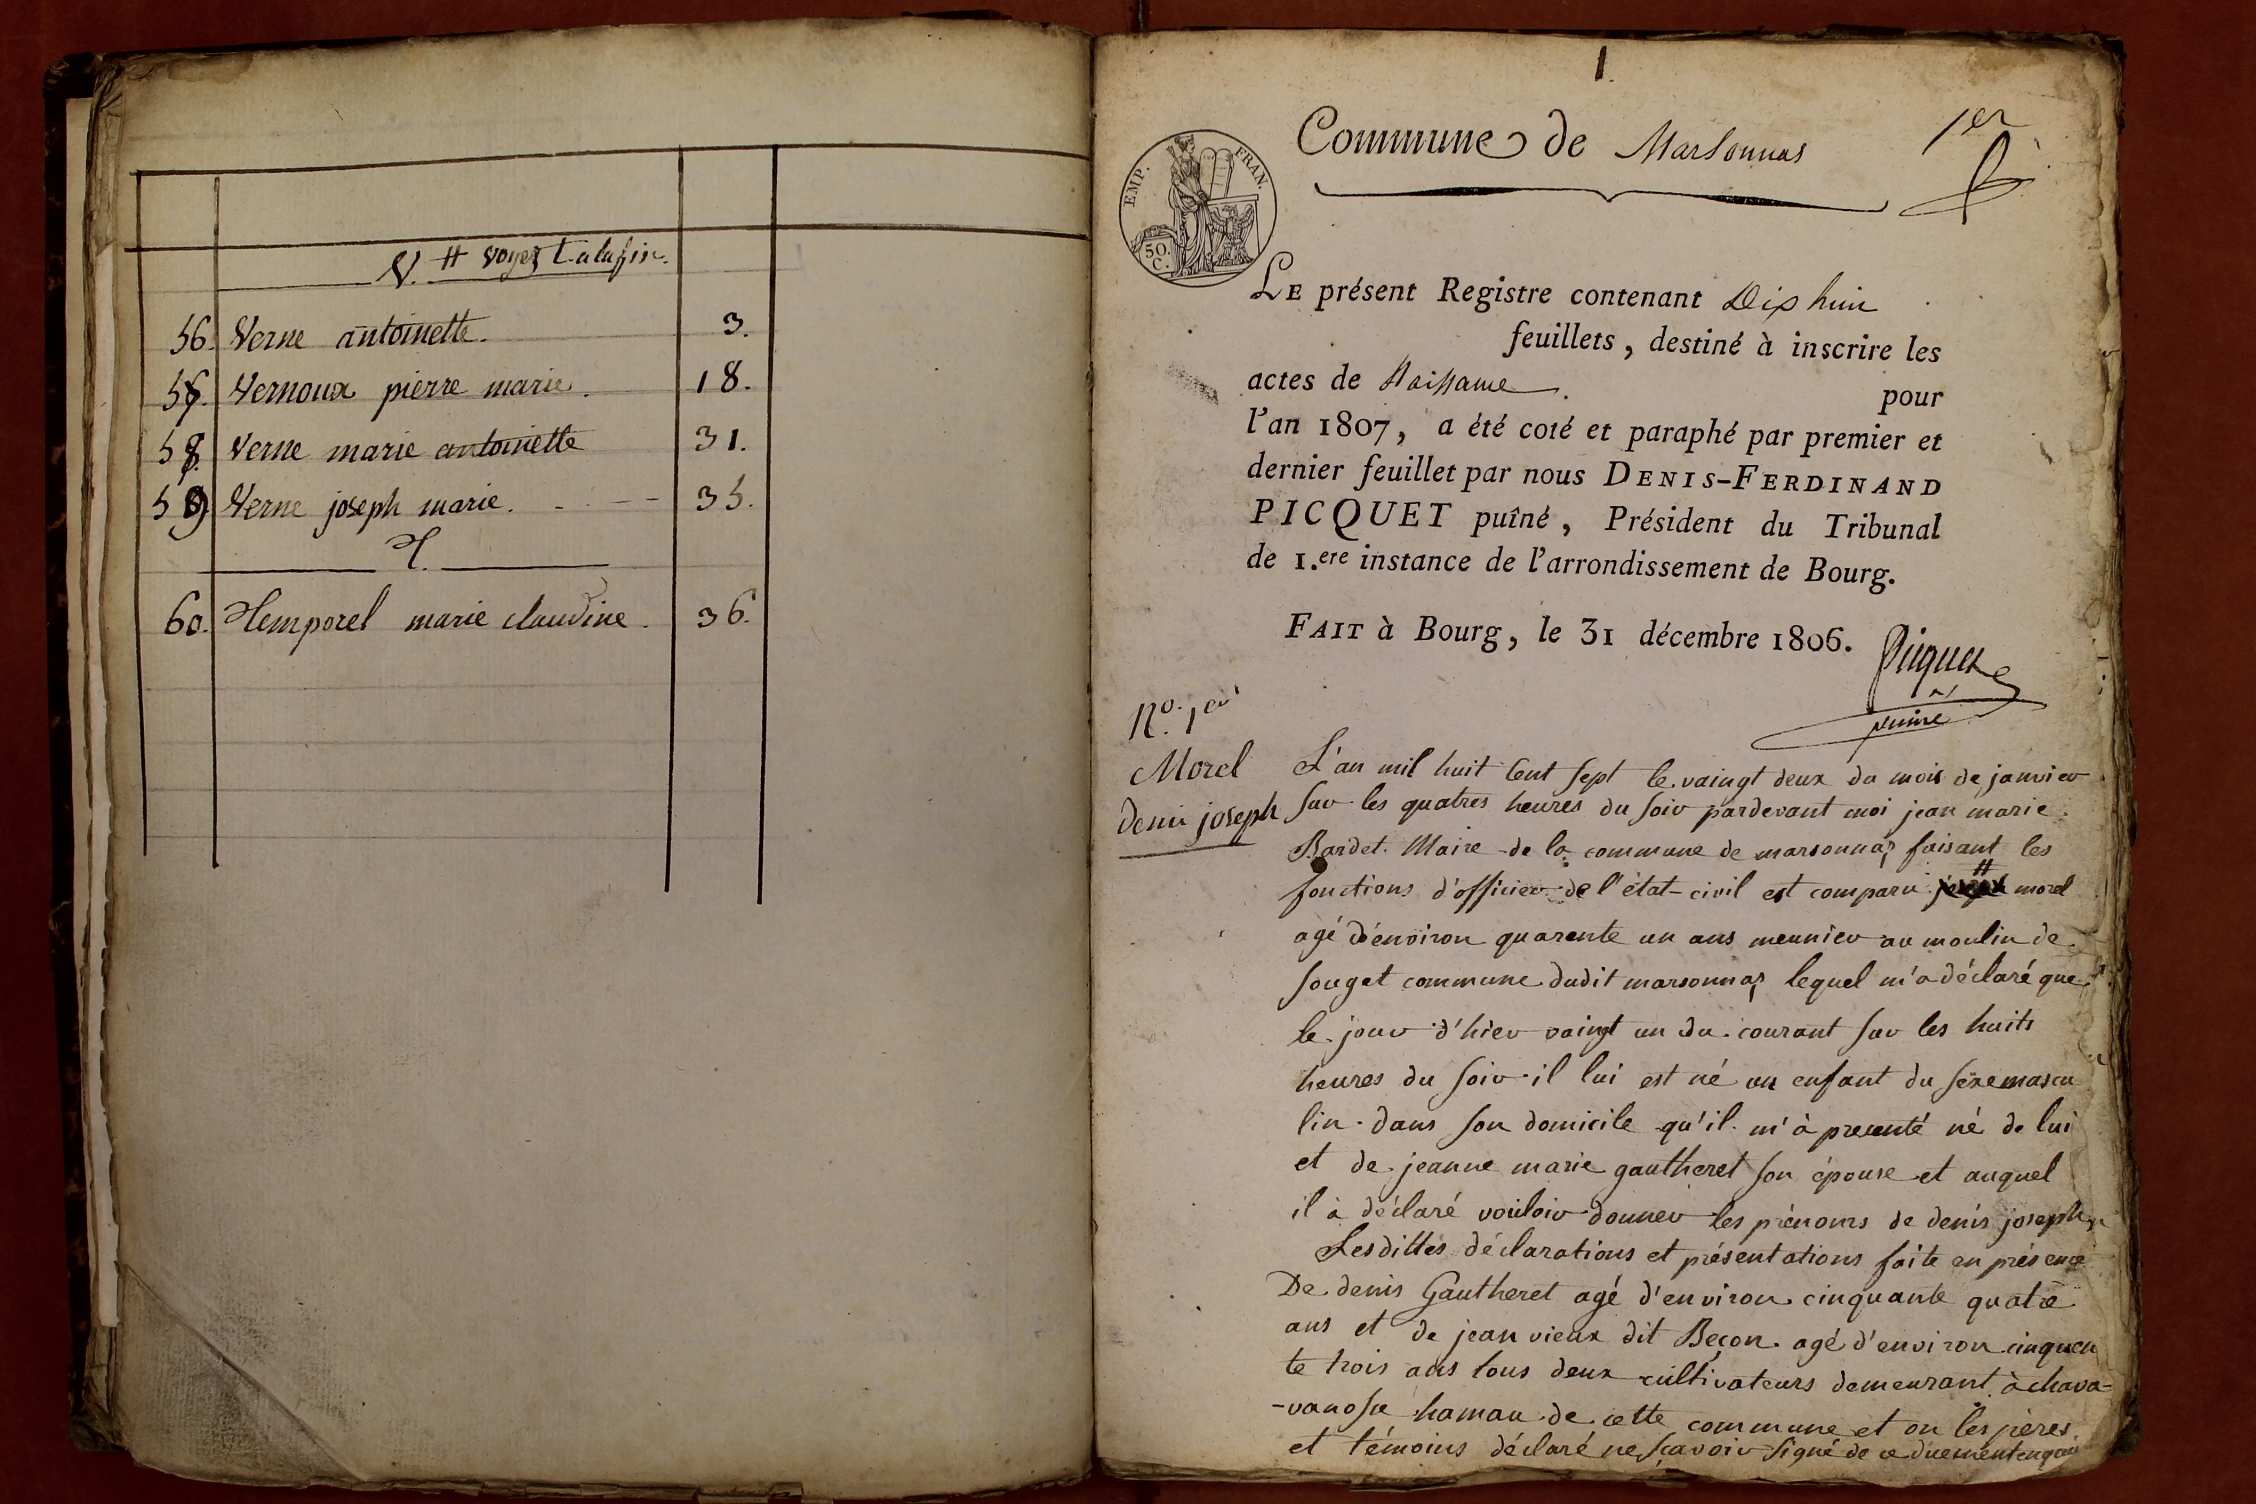 V. # voyez T. a la fin.
56. Verne antoinette. 3.
57. Vernoux pierre marie. 18.
58. Verne marie antoinette 31.
59 Verne joseph marie. 35.
T.
60. Temporel marie claudine. 36.
1.
Commune de Marsonnas
1er
EMP. FRAN.
50. C.
LE présent Registre contenant Dix huit
feuillets, destiné à inscrire les
actes de Naissance pour
l'an 1807, a été coté et paraphé par premier et
dernier feuillet par nous DENIS-FERDINAND
PICQUET puîné, Président du Tribunal
de 1.ere instance de l'arrondissement de Bourg.
FAIT à Bourg, le 31 décembre 1806.
Picquet
puiné
No. 1er
Morel
denis joseph
L'an mil huit Cent sept le vaingt deux du mois de janvier
sur les quatres heures du soir pardevant moi jean marie
Bardet Maire de la commune de marsonnas faisant les
fonctions d'officier de l'état-civil est comparu # morel
agé d'environ quarente un ans meunier au moulin de
souget commune dudit marsonnas lequel m'a déclaré que
le jour d'hier vaingt un du courant sur les huits
heures du soir il lui est né un enfant du sexe mascu
lin dans son domicile qu'il m'à presenté né de lui
et de jeanne marie gautheret son épouse et auquel
il à déclaré vouloir donner les prénoms de denis joseph
Lesdittes déclarations et présentations faite en présence
De denis Gautheret agé d'environ cinquante quatre
ans et de jean vieux dit Beçon agé d'environ cinquen
te trois ans tous deux cultivateurs demeurant à chava-
-vanosse hamau de cette commune et on les pères
et témoins déclaré ne sçavoir signé de ce duement